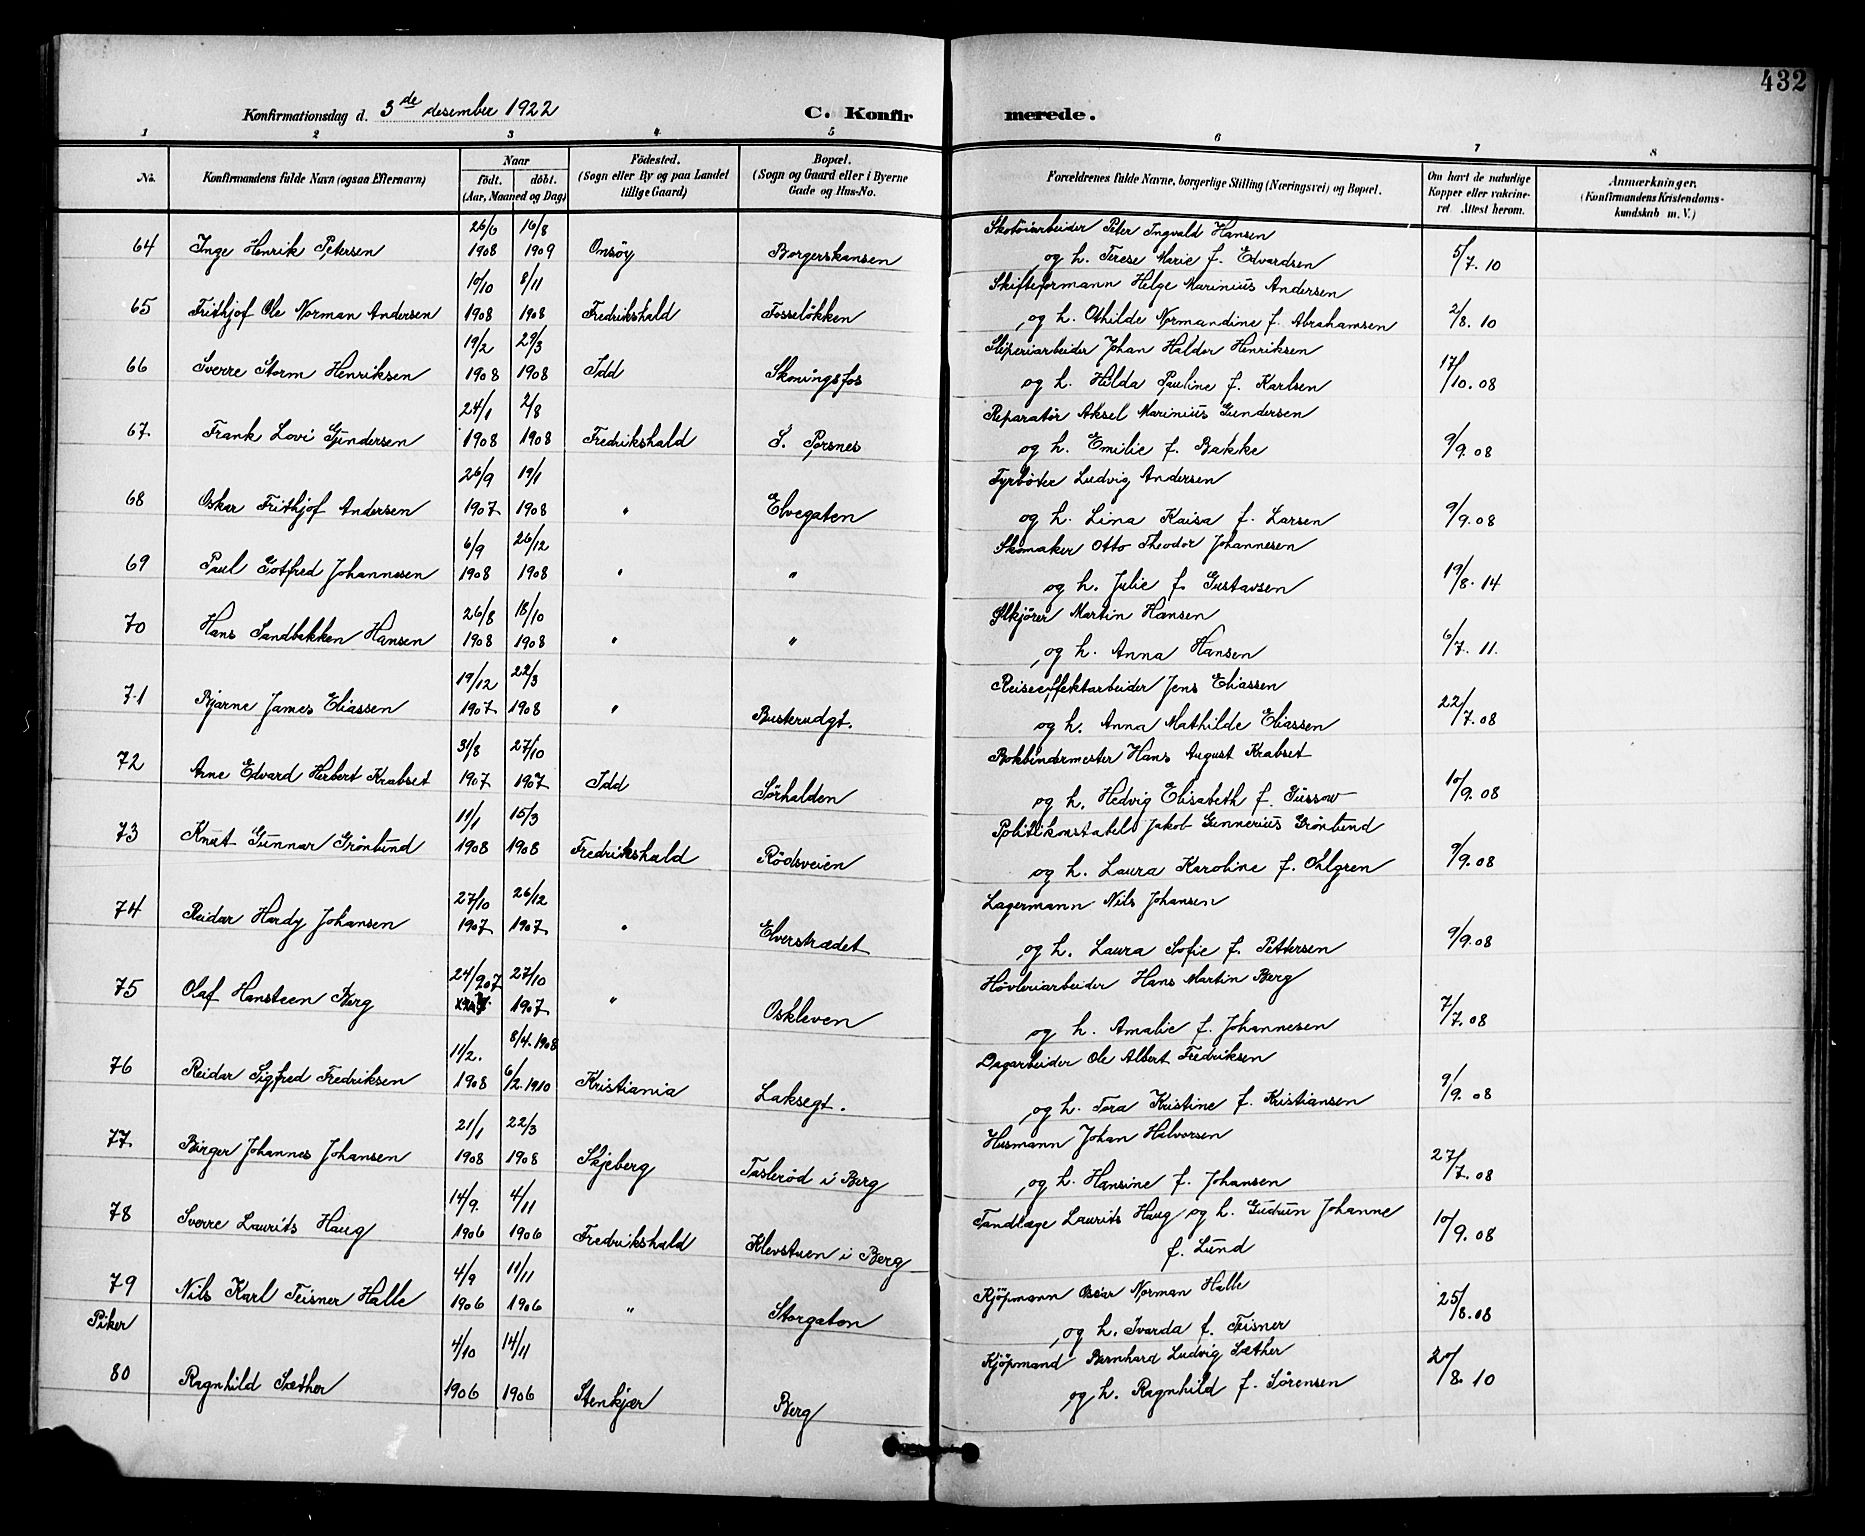 432
Konfirmationsdag d. 3de desember 1922 C. Konfirmerede.
1 2 3 4 5 6 7 8
No. Konfirmandens fulde Navn (ogsaa Efternavn) Naar födt. döbt. (Aar, Maaned og Dag) Födested. (Sogn eller By og paa Landet tillige Gaard) Bopæl. (Sogn og Gaard eller i Byerne Gade og Hus-No. Forældrenes fulde Navne, borgerlige Stilling (Næringsvei) og Bopæl. Om havt de naturlige Kopper eller vakcineret. Attest herom. Anmærkninger. (Konfirmandens Kristendomskundskab m. V.)
26/6 16/8 Skotöiarbeider Peter Ingvald Hansen
64 Inge Henrik Petersen 1908 1909 Onsöy Borgerskansen og h. Terese Marie f. Edvardsen 5/7. 10
10/10 8/11 Skifteformann Helge Marinius Andersen
65 Frithjof Ole Norman Andersen 1908 1908 Fredrikshald Fosselökken og h. Othilde Normandine f. Abrahamsen 2/8. 10
19/2 29/3 Sliperiarbeider Johan Haldor Henriksen
66 Sverre Storm Henriksen 1908 1908 Idd Skoningsfos og h. Hilda Pauline f. Karlsen 17/10. 08
24/1 2/8 Reparatör Aksel Marinius Gundersen
67 Frank Lovi Gundersen 1908 1908 Fredrikshald S. Porsnes og h. Emilie f. Bakke 9/9. 08
26/9 19/1 Fyrböter Ludvig Andersen
68 Oskar Frithjof Andersen 1907 1908 " Elvegaten og h. Lina Kaisa f. Larsen 9/9. 08
6/9 26/12 Skomaker Otto Theodor Johannesen
69 Paul Gotfred Johannesen 1908 1908 " " og h. Julie f. Gustavsen 19/8. 14
26/8 18/10 Ölkjörer Martin Hansen
70 Hans Sandbakken Hansen 1908 1908 " " og h. Anna Hansen 6/7. 11.
19/12 22/3 Reiseeffektarbeider Jens Eliassen
71 Bjarne James Eliassen 1907 1908 " Busterudgt. og h. Anna Mathilde Eliassen 22/7. 08
31/8 27/10 Bokbindermester Hans August Krabset
72 Arne Edvard Herbert Krabset 1907 1907 Idd Sörhalden og h. Hedvig Elisabeth f. Güssow 10/9. 08
11/1 15/3 Politikonstabel Jakob Gunnerius Grönlund
73 Knut Gunnar Grönlund 1908 1908 Fredrikshald Rödsveien og h. Laura Karoline f. Ohlgren 9/9. 08
27/10 26/12 Lagermann Nils Johansen
74 Reidar Hardy Johansen 1907 1907 " Elverstrædet og h. Laura Sofie f. Pettersen 9/9. 08
24/9 07 27/10 Hövleriarbeider Hans Martin Berg
75 Olaf Hansteen Berg 1907 " Oskleven og h. Amalie f. Johannesen 7/7. 08
11/2. 8/4. 1908 Dagarbeider Ole Albert Fredriksen
76 Reidar Sigfred Fredriksen 1908 6/2. 1910 Kristiania Laksegt. og h. Tora Kristine f. Kristiansen 9/9. 08
21/1 22/3 Husmann Johan Halvorsen
77 Birger Johannes Johansen 1908 1908 Skjeberg Taslerød i Berg og h. Hansine f. Johansen 27/7. 08
14/9. 4/11 Tandlæge Laurits Haug og h. Gudrun Johanne
78 Sverre Laurits Haug 1906 1906 Fredrikshald Klevstuen i Berg f. Lund 10/9. 08
4/9 11/11 Kjöpmann Oscar Norman Halle
79 Nils Karl Teisner Halle 1906 1906 " Storgaten og h. Ivarda f. Teisner 25/8. 08
Piker
4/10 14/11 Kjöpmand Bernhard Ludvig Sæther
80 Ragnhild Sæther 1906 1906 Stenkjær Berg og h. Ragnhild f. Sörensen 20/8. 10